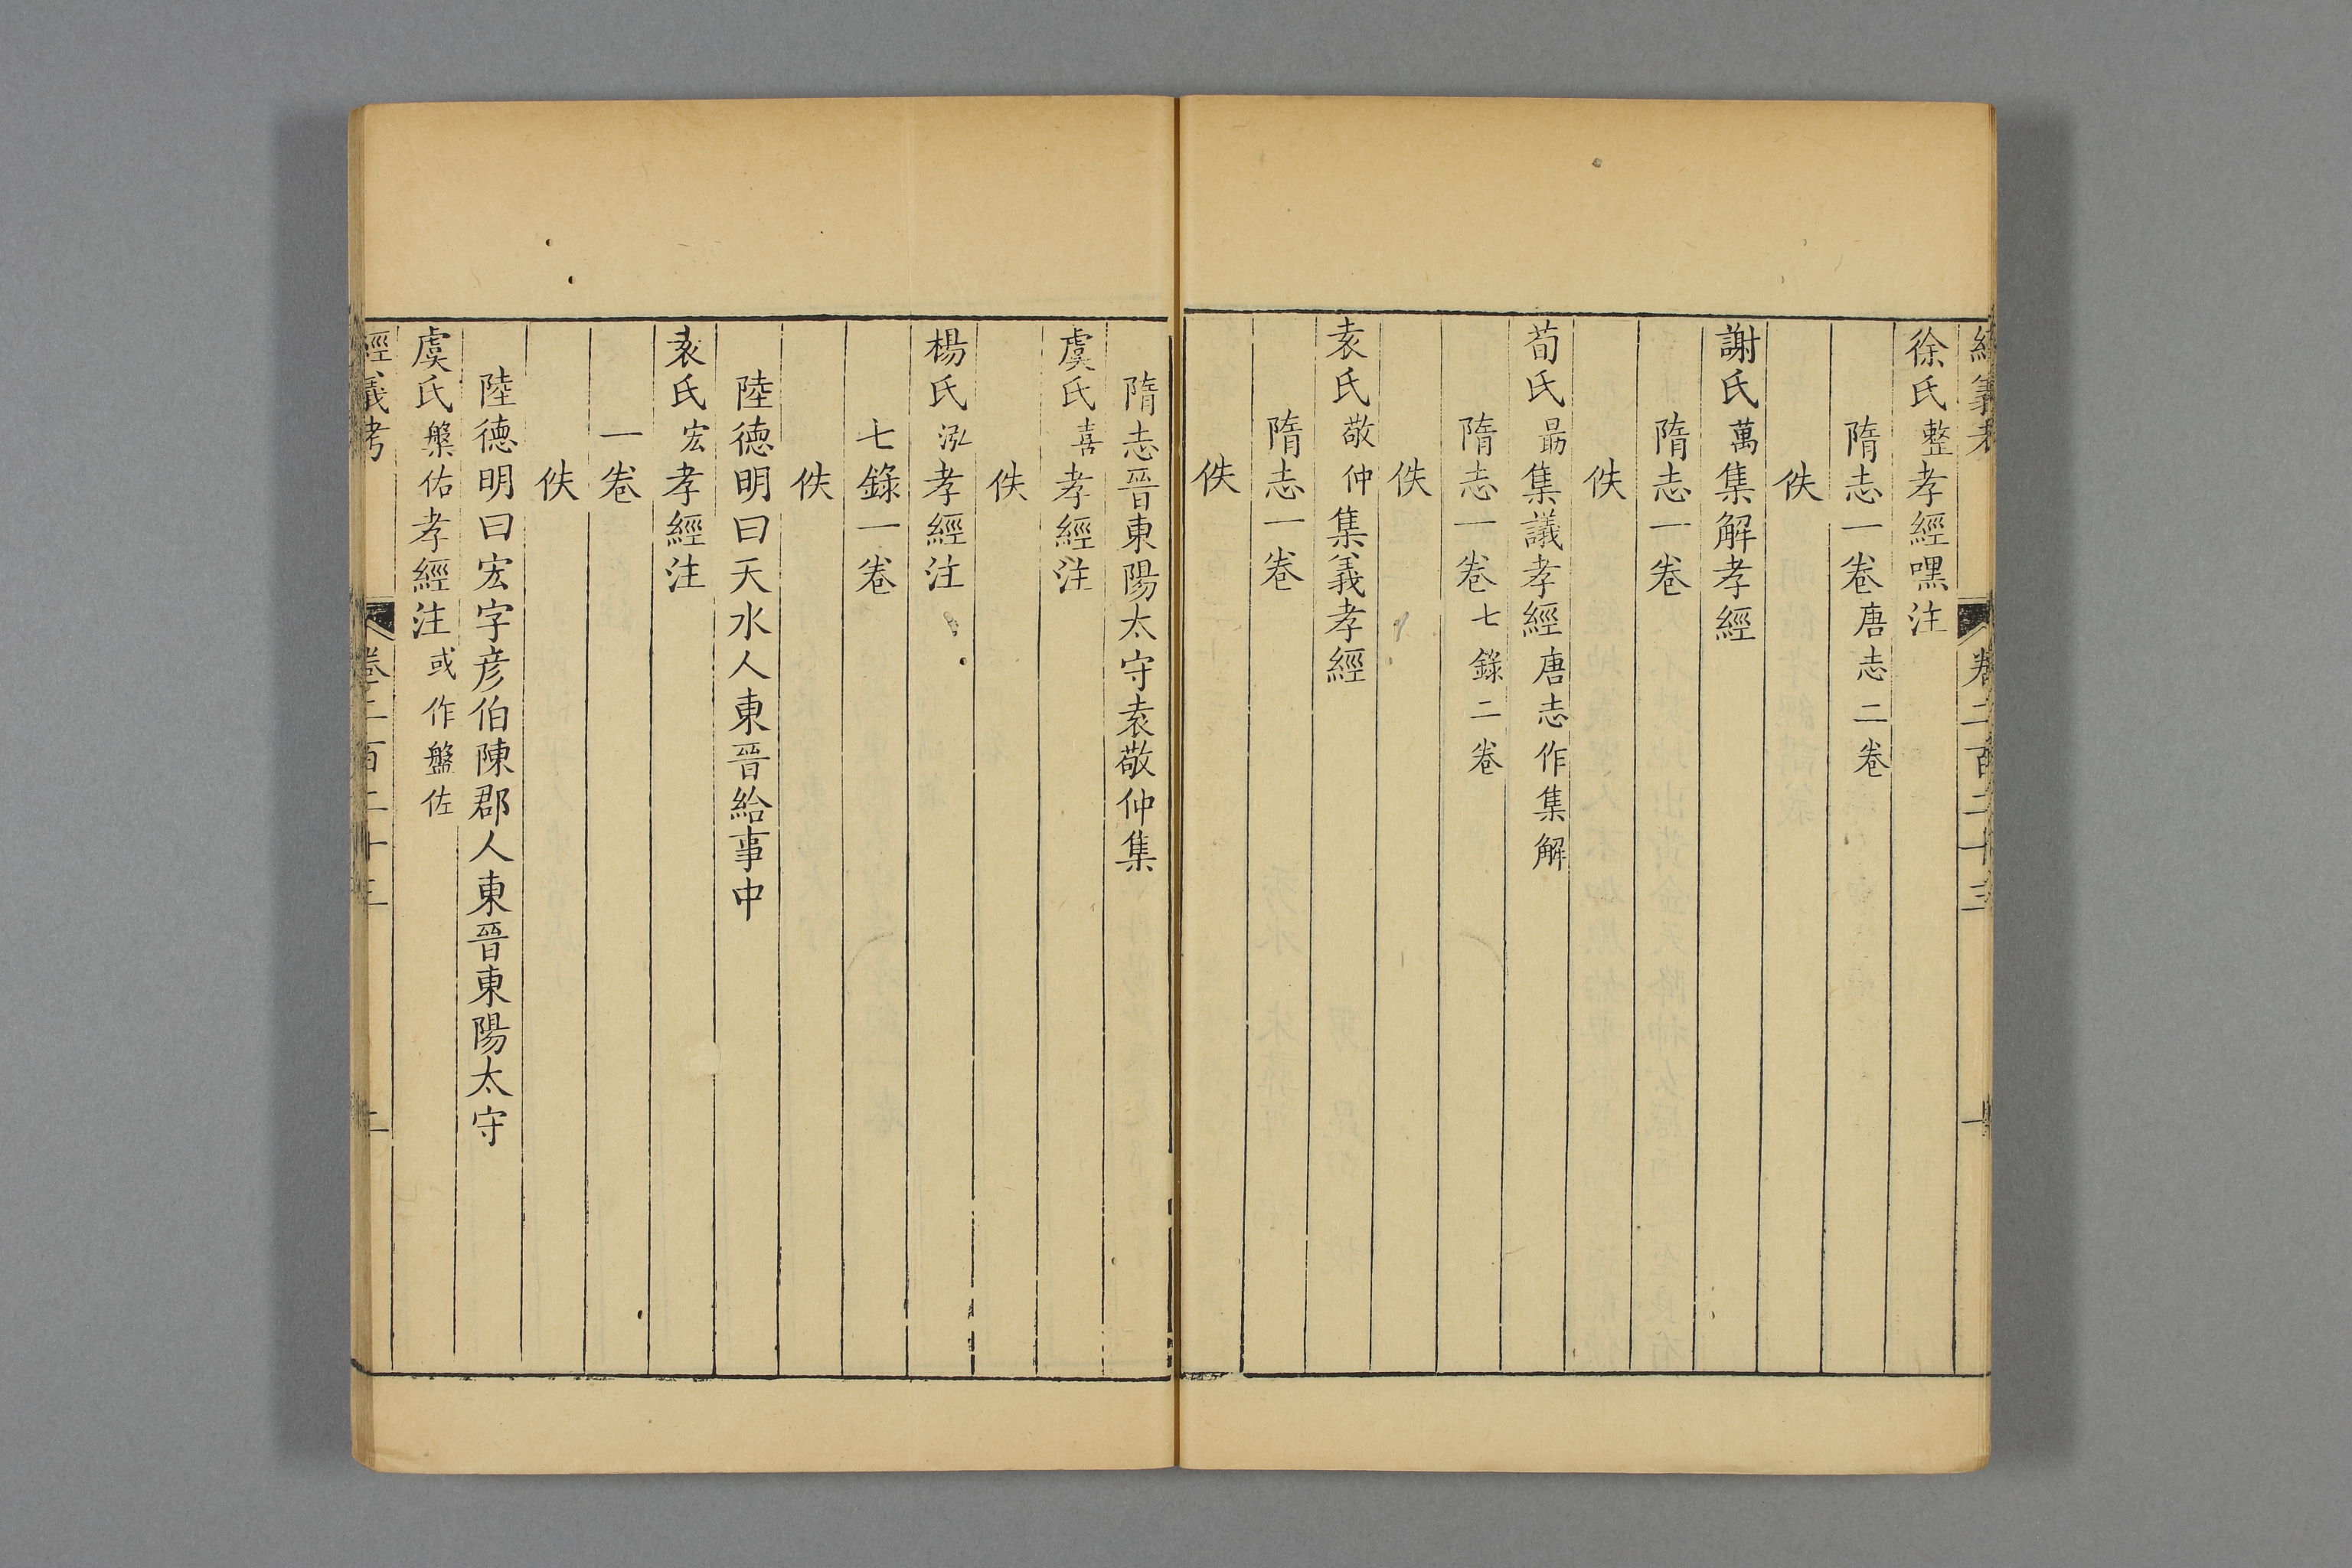 經義考 卷二百二十三 一
徐氏整孝經嘿注
隋志一卷唐志二卷
佚
謝氏萬集解孝經
隋志一卷
佚
荀氏勗集議孝經唐志作集解
隋志一卷七錄二卷
佚
袁氏敬仲集義孝經
隋志一卷
佚
隋志晉東陽太守袁敬仲集
虞氏喜孝經注
佚
楊氏泓孝經注
七錄一卷
佚
陸德明曰天水人東晉給事中
袁氏宏孝經注
一卷
佚
陸德明曰宏字彥伯陳郡人東晉東陽太守
虞氏槃佑孝經注或作盤佐
經義考 卷二百二十三 二